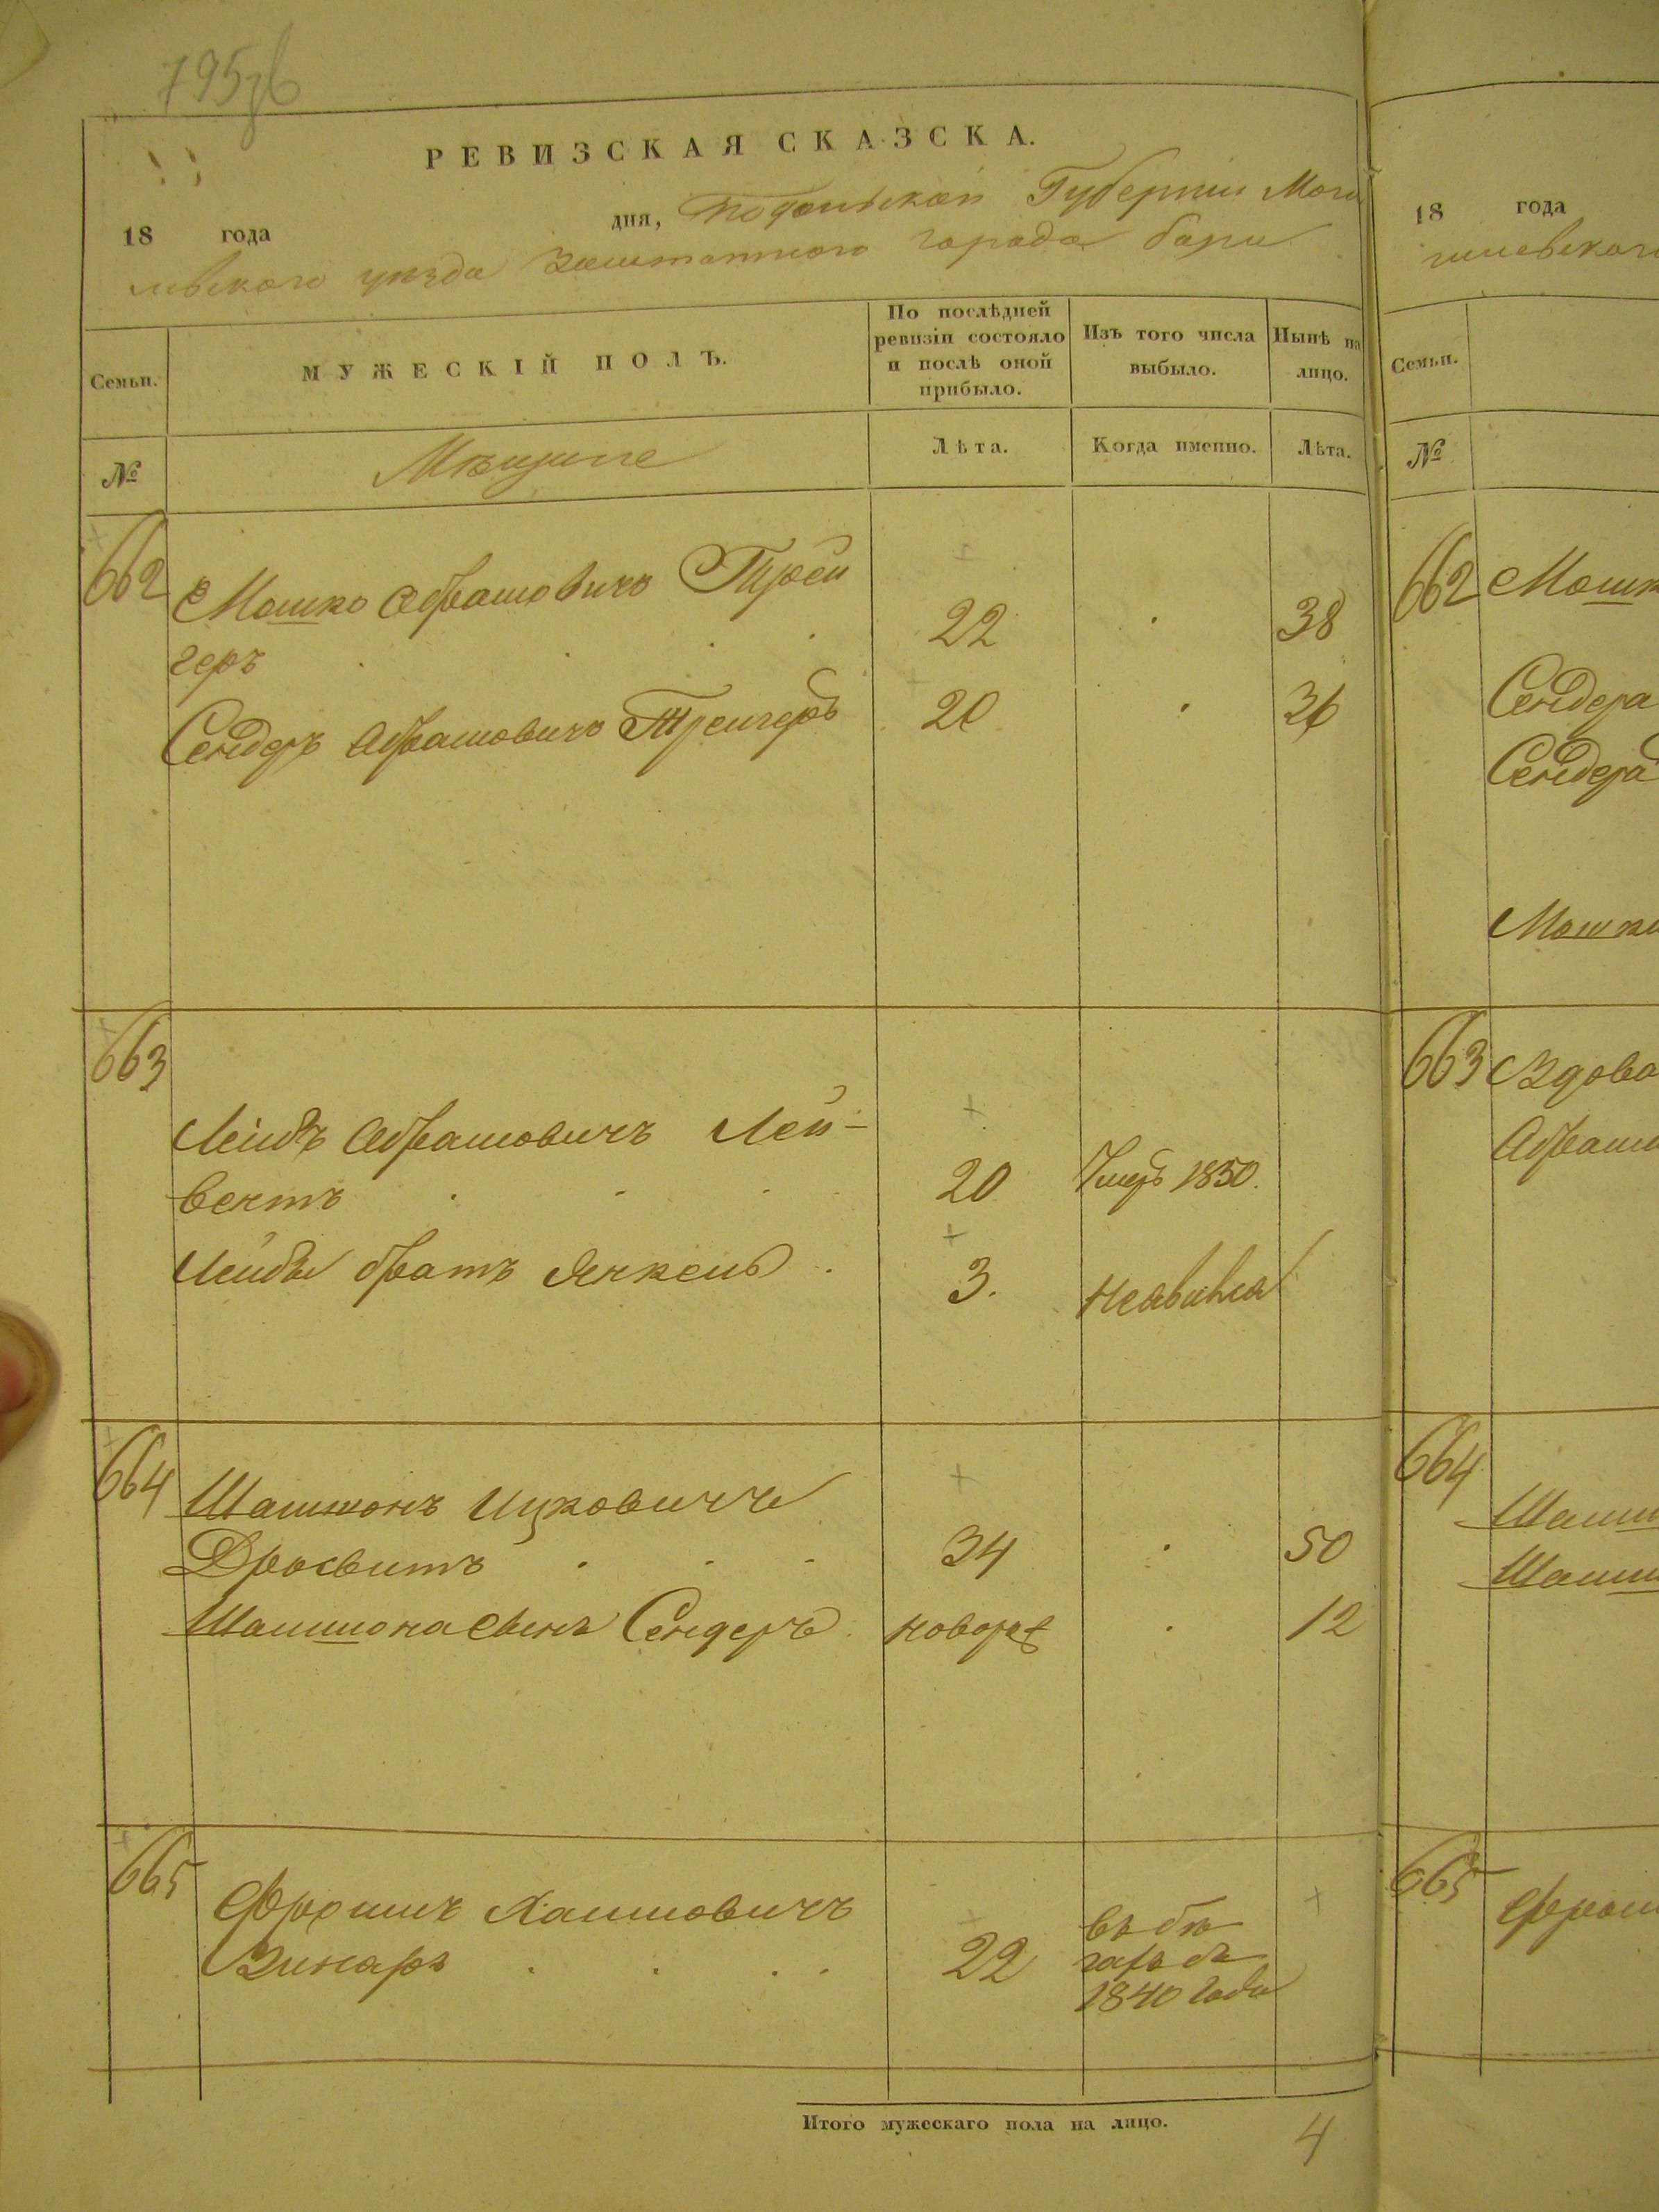 795зв
РЕВИЗСКАЯ СКАЗСКА.
18 года дня, Подольской Губернии Моги
левского уѣзда Заштатного города Бара
Семьи. МУЖЕСКІЙ ПОЛЪ. По послѣдней ревизіи состояло и послѣ оной прибыло. Изъ того числа выбыло. Нынѣ на лицо.
№ Мѣщане Лѣта. Когда именно. Лѣта.
662 Мошко Абрамовичъ Трей
геръ 22 38
Сендеръ Абрамовичъ Трейгеръ 20 36
663
Лейбъ Абрамовичъ Лей-
вентъ 20 Умеръ 1850.
Лейбы братъ Янкель 3. неявился
664 Шашмонъ Ицковичъ
Дросвитъ 34 50
Шашмона сынъ Сендеръ новорож 12
665 Фроимъ Хаимовичъ
Винаръ 22 въ бѣ
гахъ съ
1840 года
Итого мужескаго пола на лицо. 4
18 года
гилевского
Семьи.
№
662 Мошк
Сендера
Сендера
Мошки
663 Вдова
Абрам
664
665 Фроим